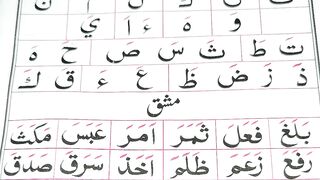 وَ هَ ءَ اَ يَ
تَ طَ ثَ سَ صَ حَ هَ
ذَ زَ ضَ ظَ عَ ءَ قَ كَ
مشق
بَلَغَ فَعَلَ ثَمَرَ اَمَرَ عَبَسَ مَكَثَ
رَفَعَ زَعَمَ ظَلَمَ اَخَذَ سَرَقَ صَدَقَ